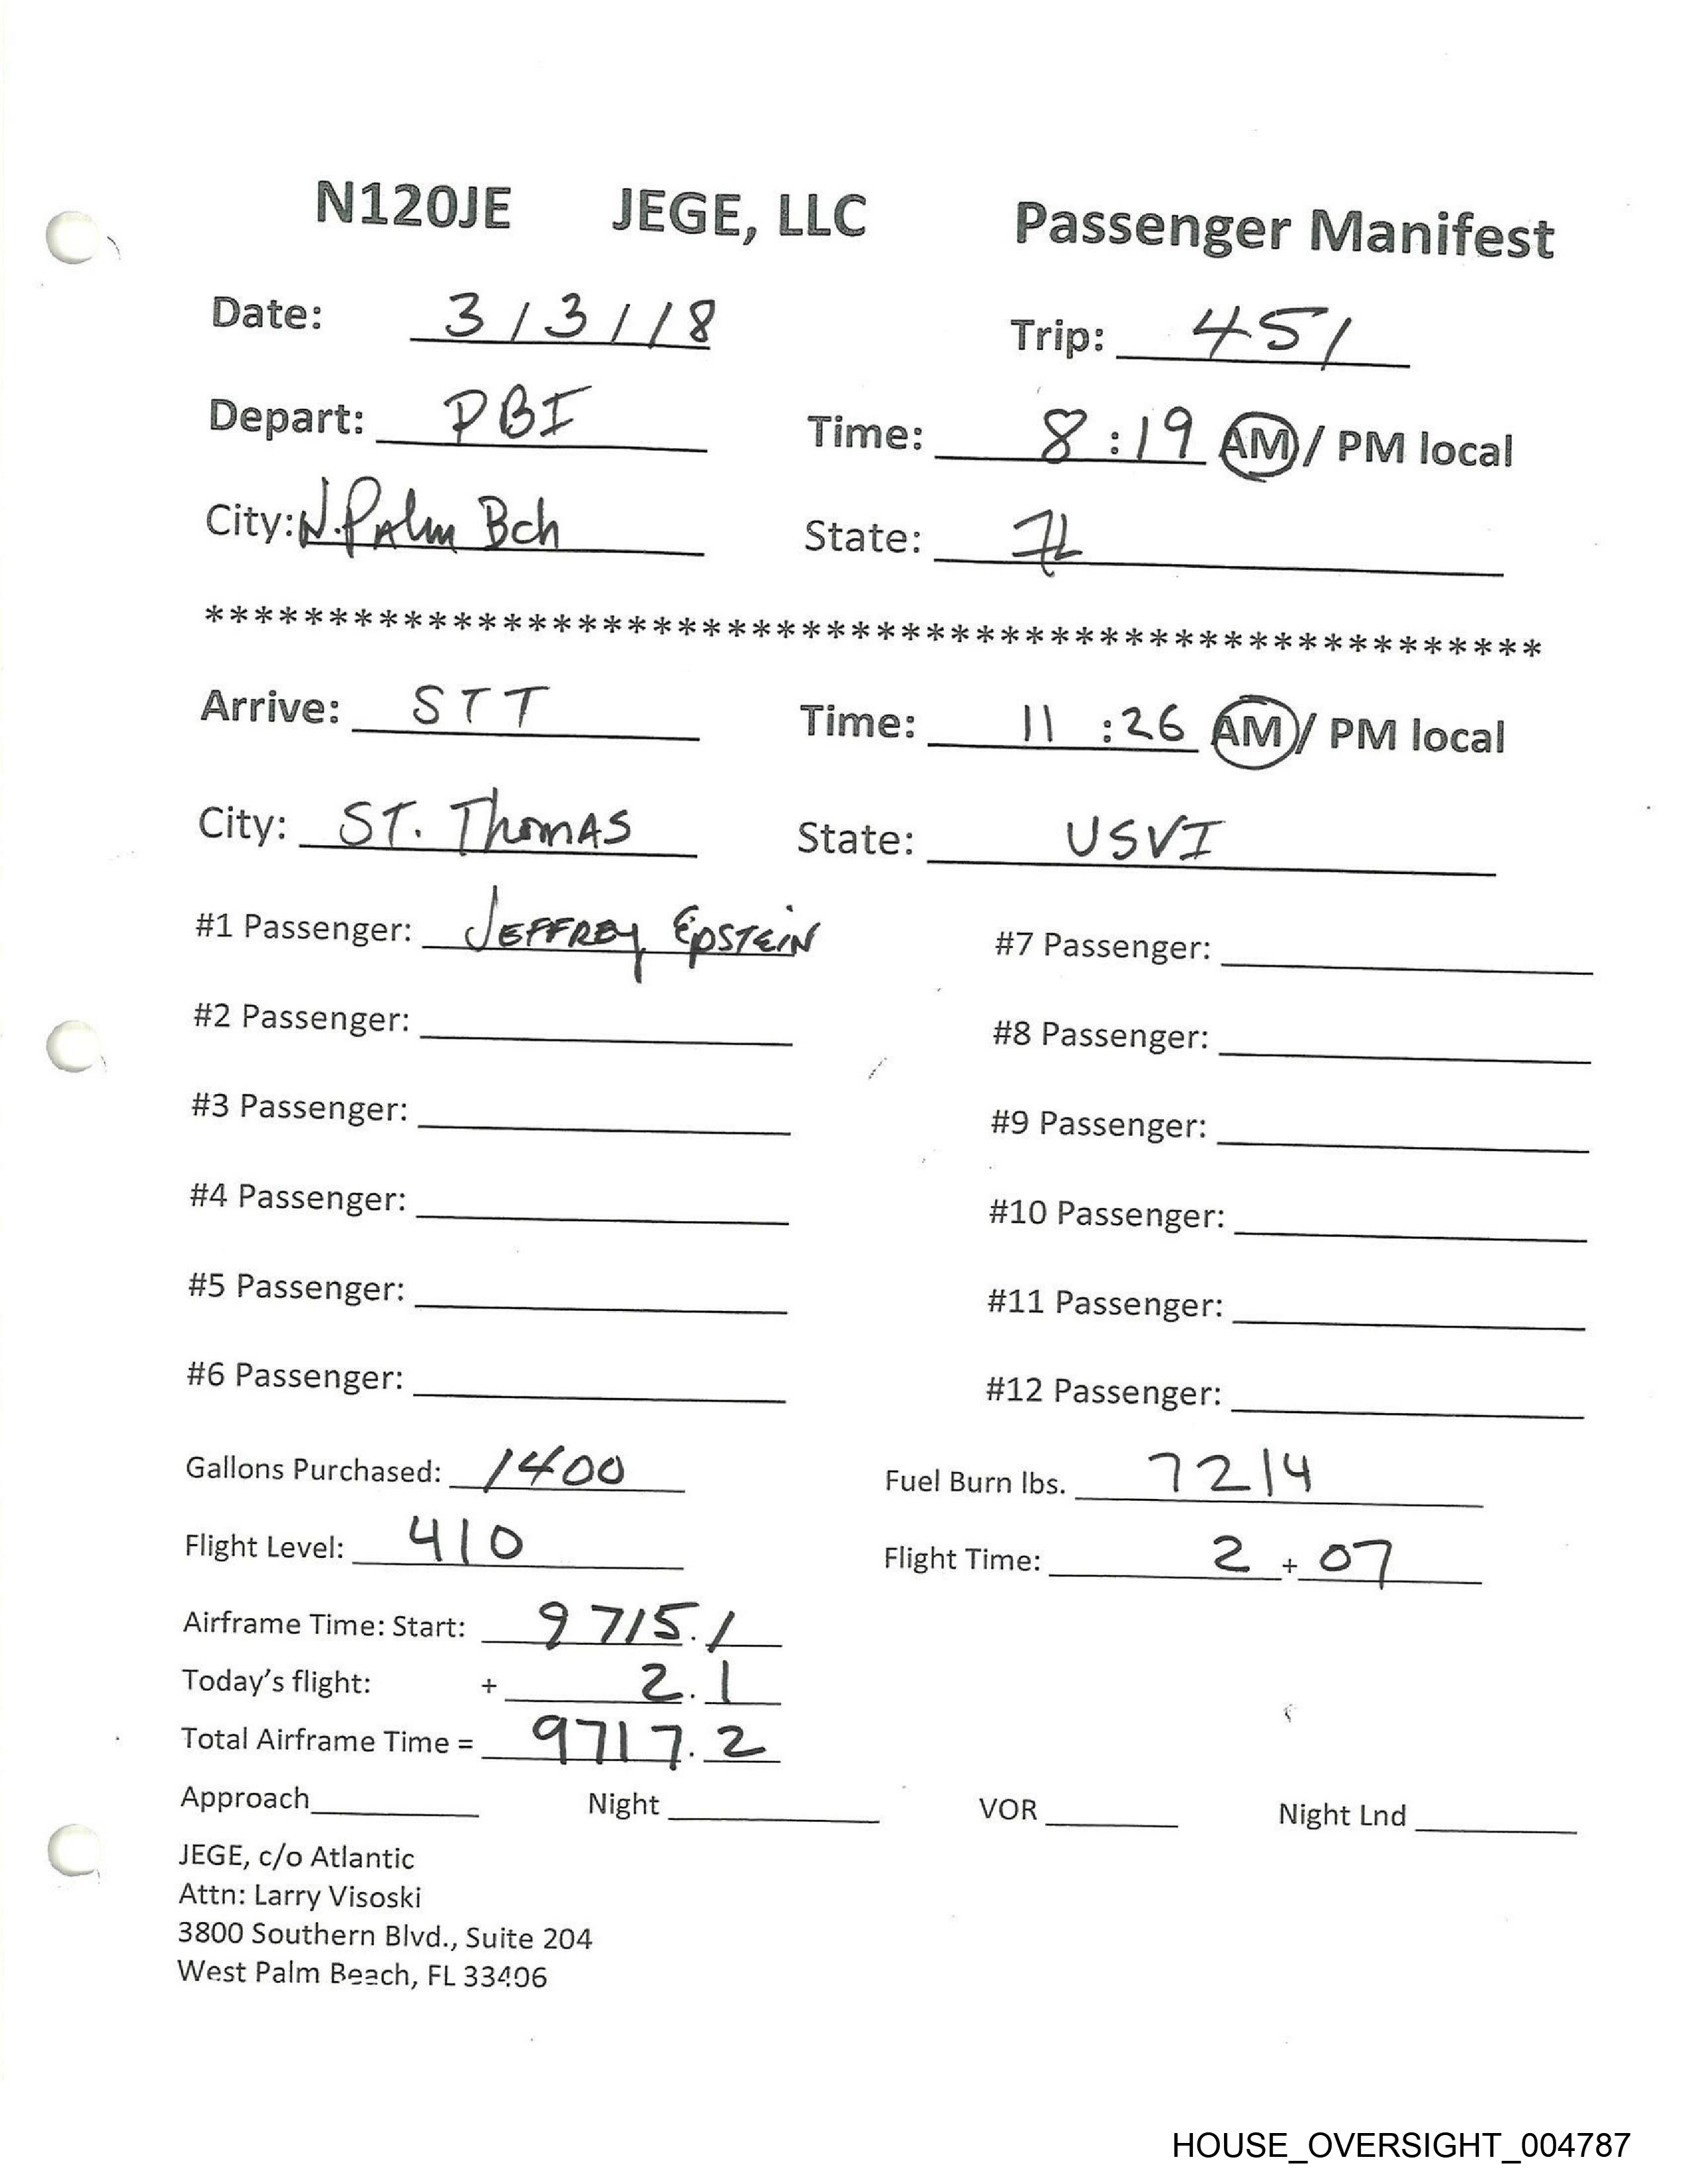 N120JE JEGE, LLC Passenger Manifest
Date: 3/3/18 Trip: 451
Depart: PBI Time: 8:19 AM / PM local
City: W.Palm Bch State: FL
******************************************************
Arrive: STT Time: 11:26 AM / PM local
City: ST. Thomas State: USVI
#1 Passenger: JEFFREY EPSTEIN #7 Passenger:
#2 Passenger: #8 Passenger:
#3 Passenger: #9 Passenger:
#4 Passenger: #10 Passenger:
#5 Passenger: #11 Passenger:
#6 Passenger: #12 Passenger:
Gallons Purchased: 1400 Fuel Burn lbs. 7214
Flight Level: 410 Flight Time: 2 + 07
Airframe Time: Start: 9715.1
Today's flight: + 2.1
Total Airframe Time = 9717.2
Approach Night VOR Night Lnd
JEGE, c/o Atlantic
Attn: Larry Visoski
3800 Southern Blvd., Suite 204
West Palm Beach, FL 33406
HOUSE_OVERSIGHT_004787